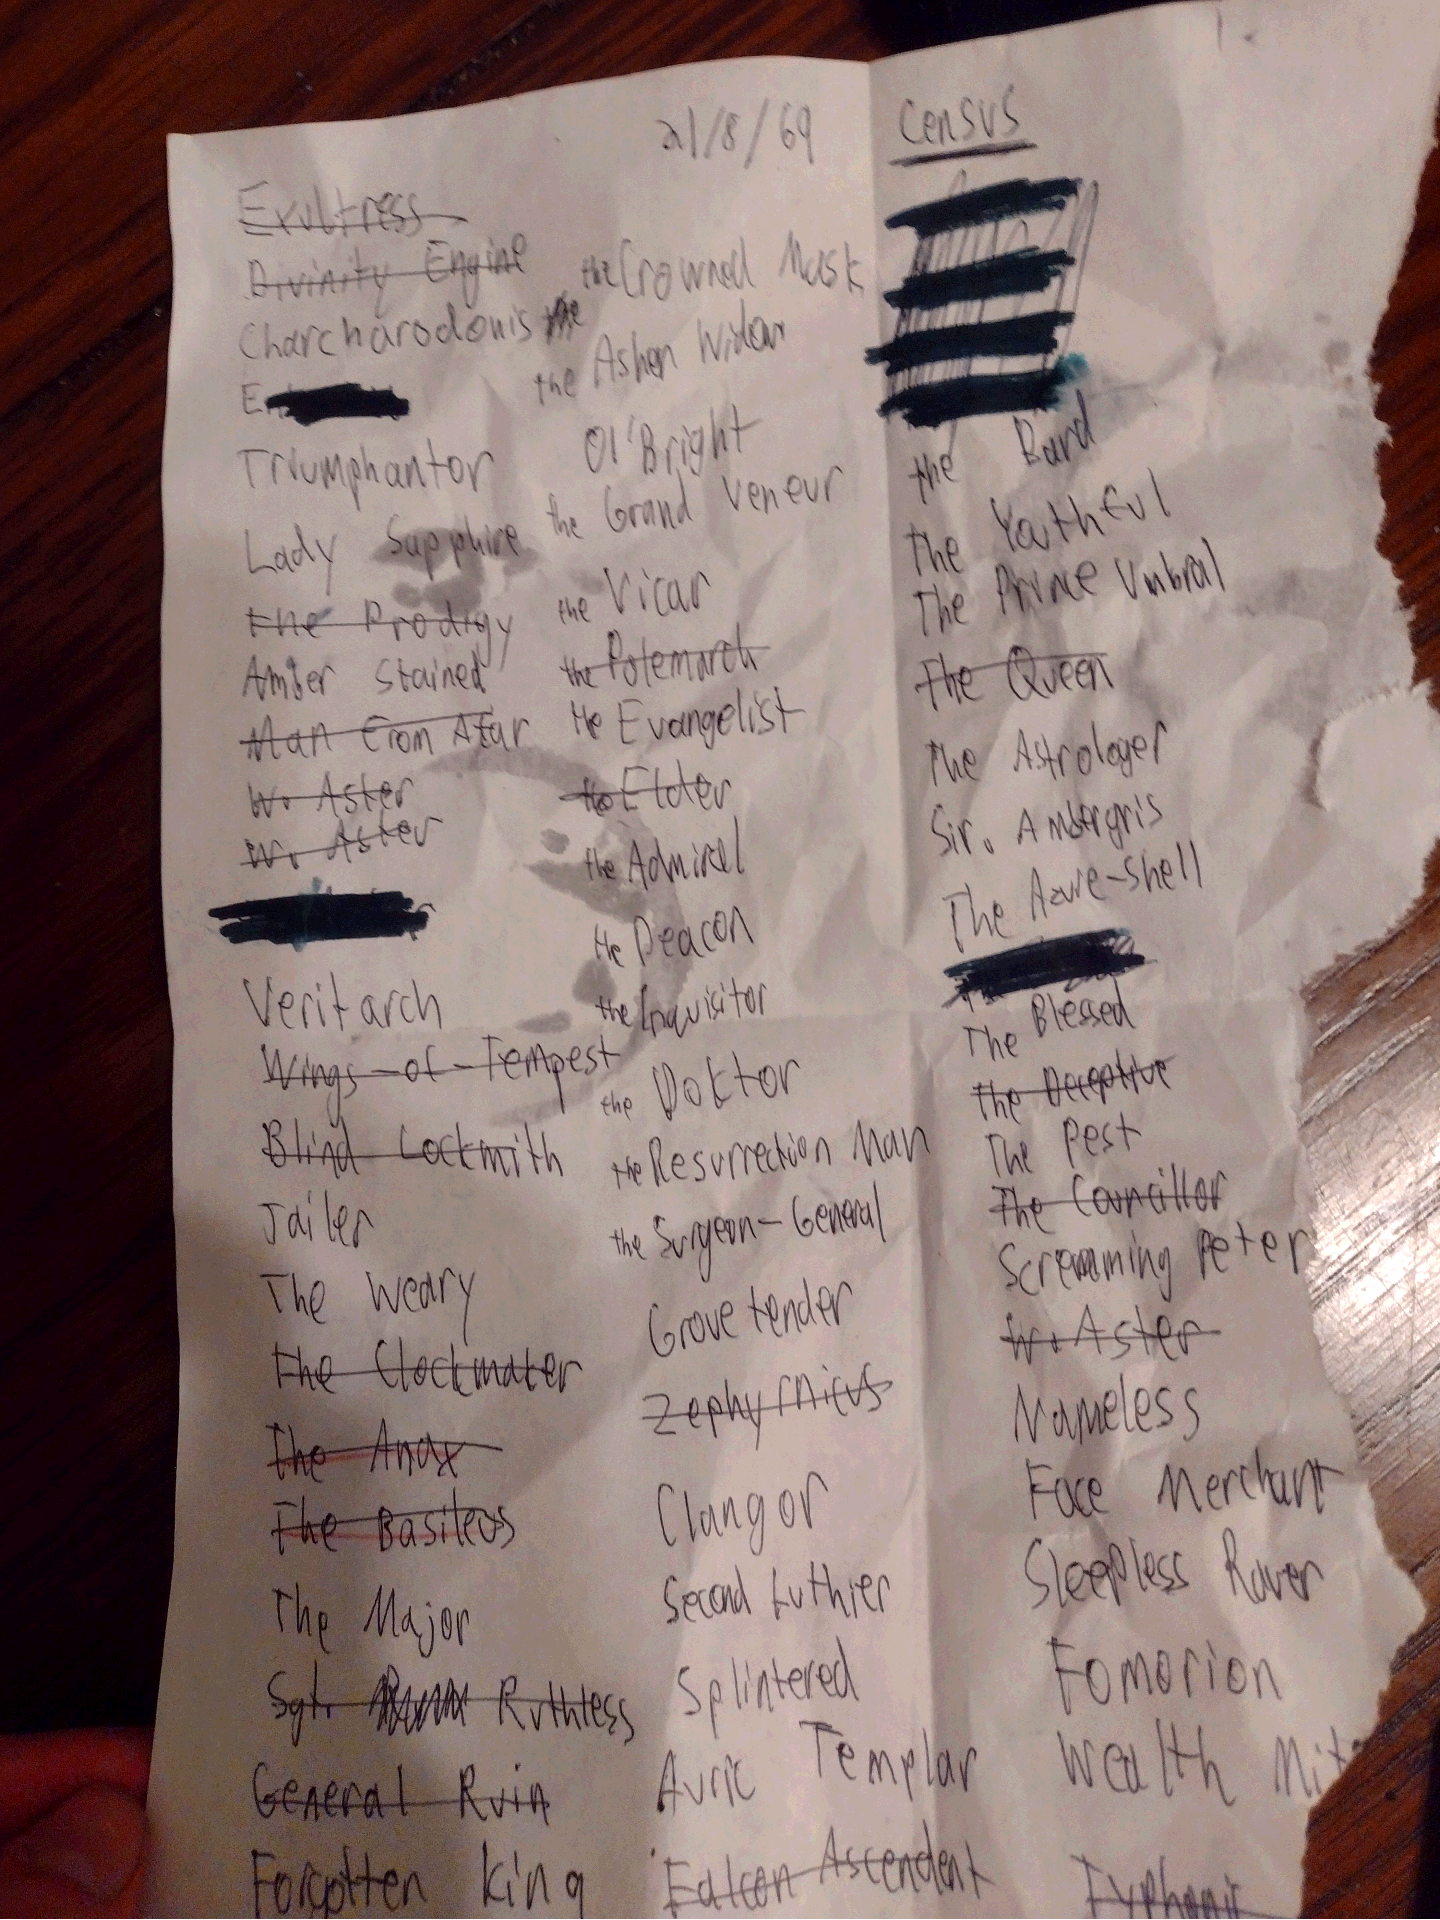 21/8/69
Census
Exultress
Divinity Engine
Charcharodonis the
E
Triumphantor
Lady Sapphire
the Prodigy
Amber Stained
Man From Afar
W. Aster
W. Aster
Veritarch
Wings-of-Tempest
Blind Lockmith
Jailer
The Weary
The Clockmaker
The Anax
The Basileus
The Major
Sgt. Ruthless
General Ruin
Forgotten King
the Crowned Mask
the Ashen Widow
Ol' Bright
the Grand Veneur
the Vicar
the Polemarch
the Evangelist
the Elder
the Admiral
the Deacon
the Inquisitor
the Doktor
the Resurrection Man
the Surgeon-General
Grovetender
Zephyrnicus
Clangor
Second Luthier
Splintered
Auric Templar
Falcon Ascendent
the Bard
The Youthful
The Prince Umbral
The Queen
The Astrologer
Sir. Ambergris
The Azure-Shell
The Blessed
The Deceptive
The Pest
The Councillor
Screaming Peter
W. Aster
Nameless
Face Merchant
Sleepless Raver
Fomorion
Wealth